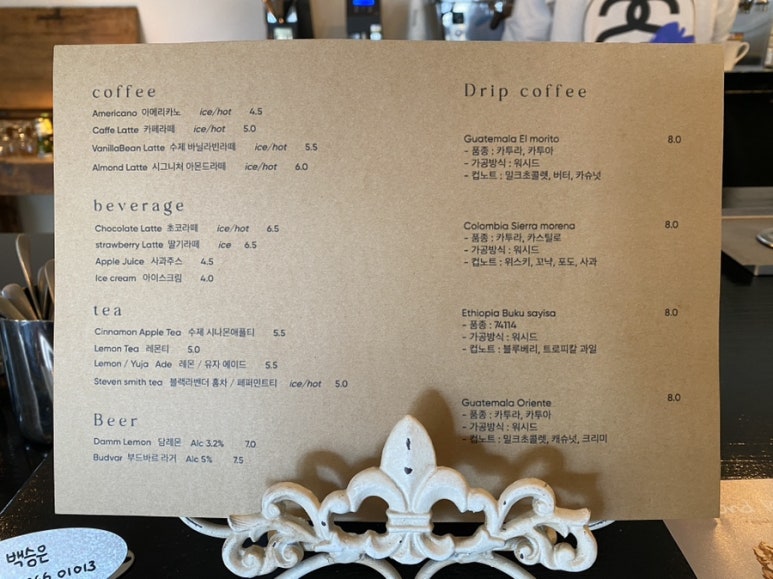 coffee
Americano 아메리카노 ice/hot 4.5
Caffe Latte 카페라떼 ice/hot 5.0
VanillaBean Latte 수제 바닐라빈라떼 ice/hot 5.5
Almond Latte 시그니처 아몬드라떼 ice/hot 6.0
beverage
Chocolate Latte 초코라떼 ice/hot 6.5
strawberry Latte 딸기라떼 ice 6.5
Apple Juice 사과주스 4.5
Ice cream 아이스크림 4.0
tea
Cinnamon Apple Tea 수제 시나몬애플티 5.5
Lemon Tea 레몬티 5.0
Lemon / Yuja Ade 레몬 / 유자 에이드 5.5
Steven smith tea 블랙라벤더 홍차 / 페퍼민트티 ice/hot 5.0
Beer
Damm Lemon 담레몬 Alc 3.2% 7.0
Budvar 부드바르 라거 Alc 5% 7.5
Drip coffee
Guatemala El morito 8.0
- 품종 : 카투라, 카투아
- 가공방식 : 워시드
- 컵노트 : 밀크초콜렛, 버터, 카슈넛
Colombia Sierra morena 8.0
- 품종 : 카투라, 카스틸로
- 가공방식 : 워시드
- 컵노트 : 위스키, 꼬냑, 포도, 사과
Ethiopia Buku sayisa 8.0
- 품종 : 74114
- 가공방식 : 워시드
- 컵노트 : 블루베리, 트로피칼 과일
Guatemala Oriente 8.0
- 품종 : 카투라, 카투아
- 가공방식 : 워시드
- 컵노트 : 밀크초콜렛, 캐슈넛, 크리미
백승은
01013